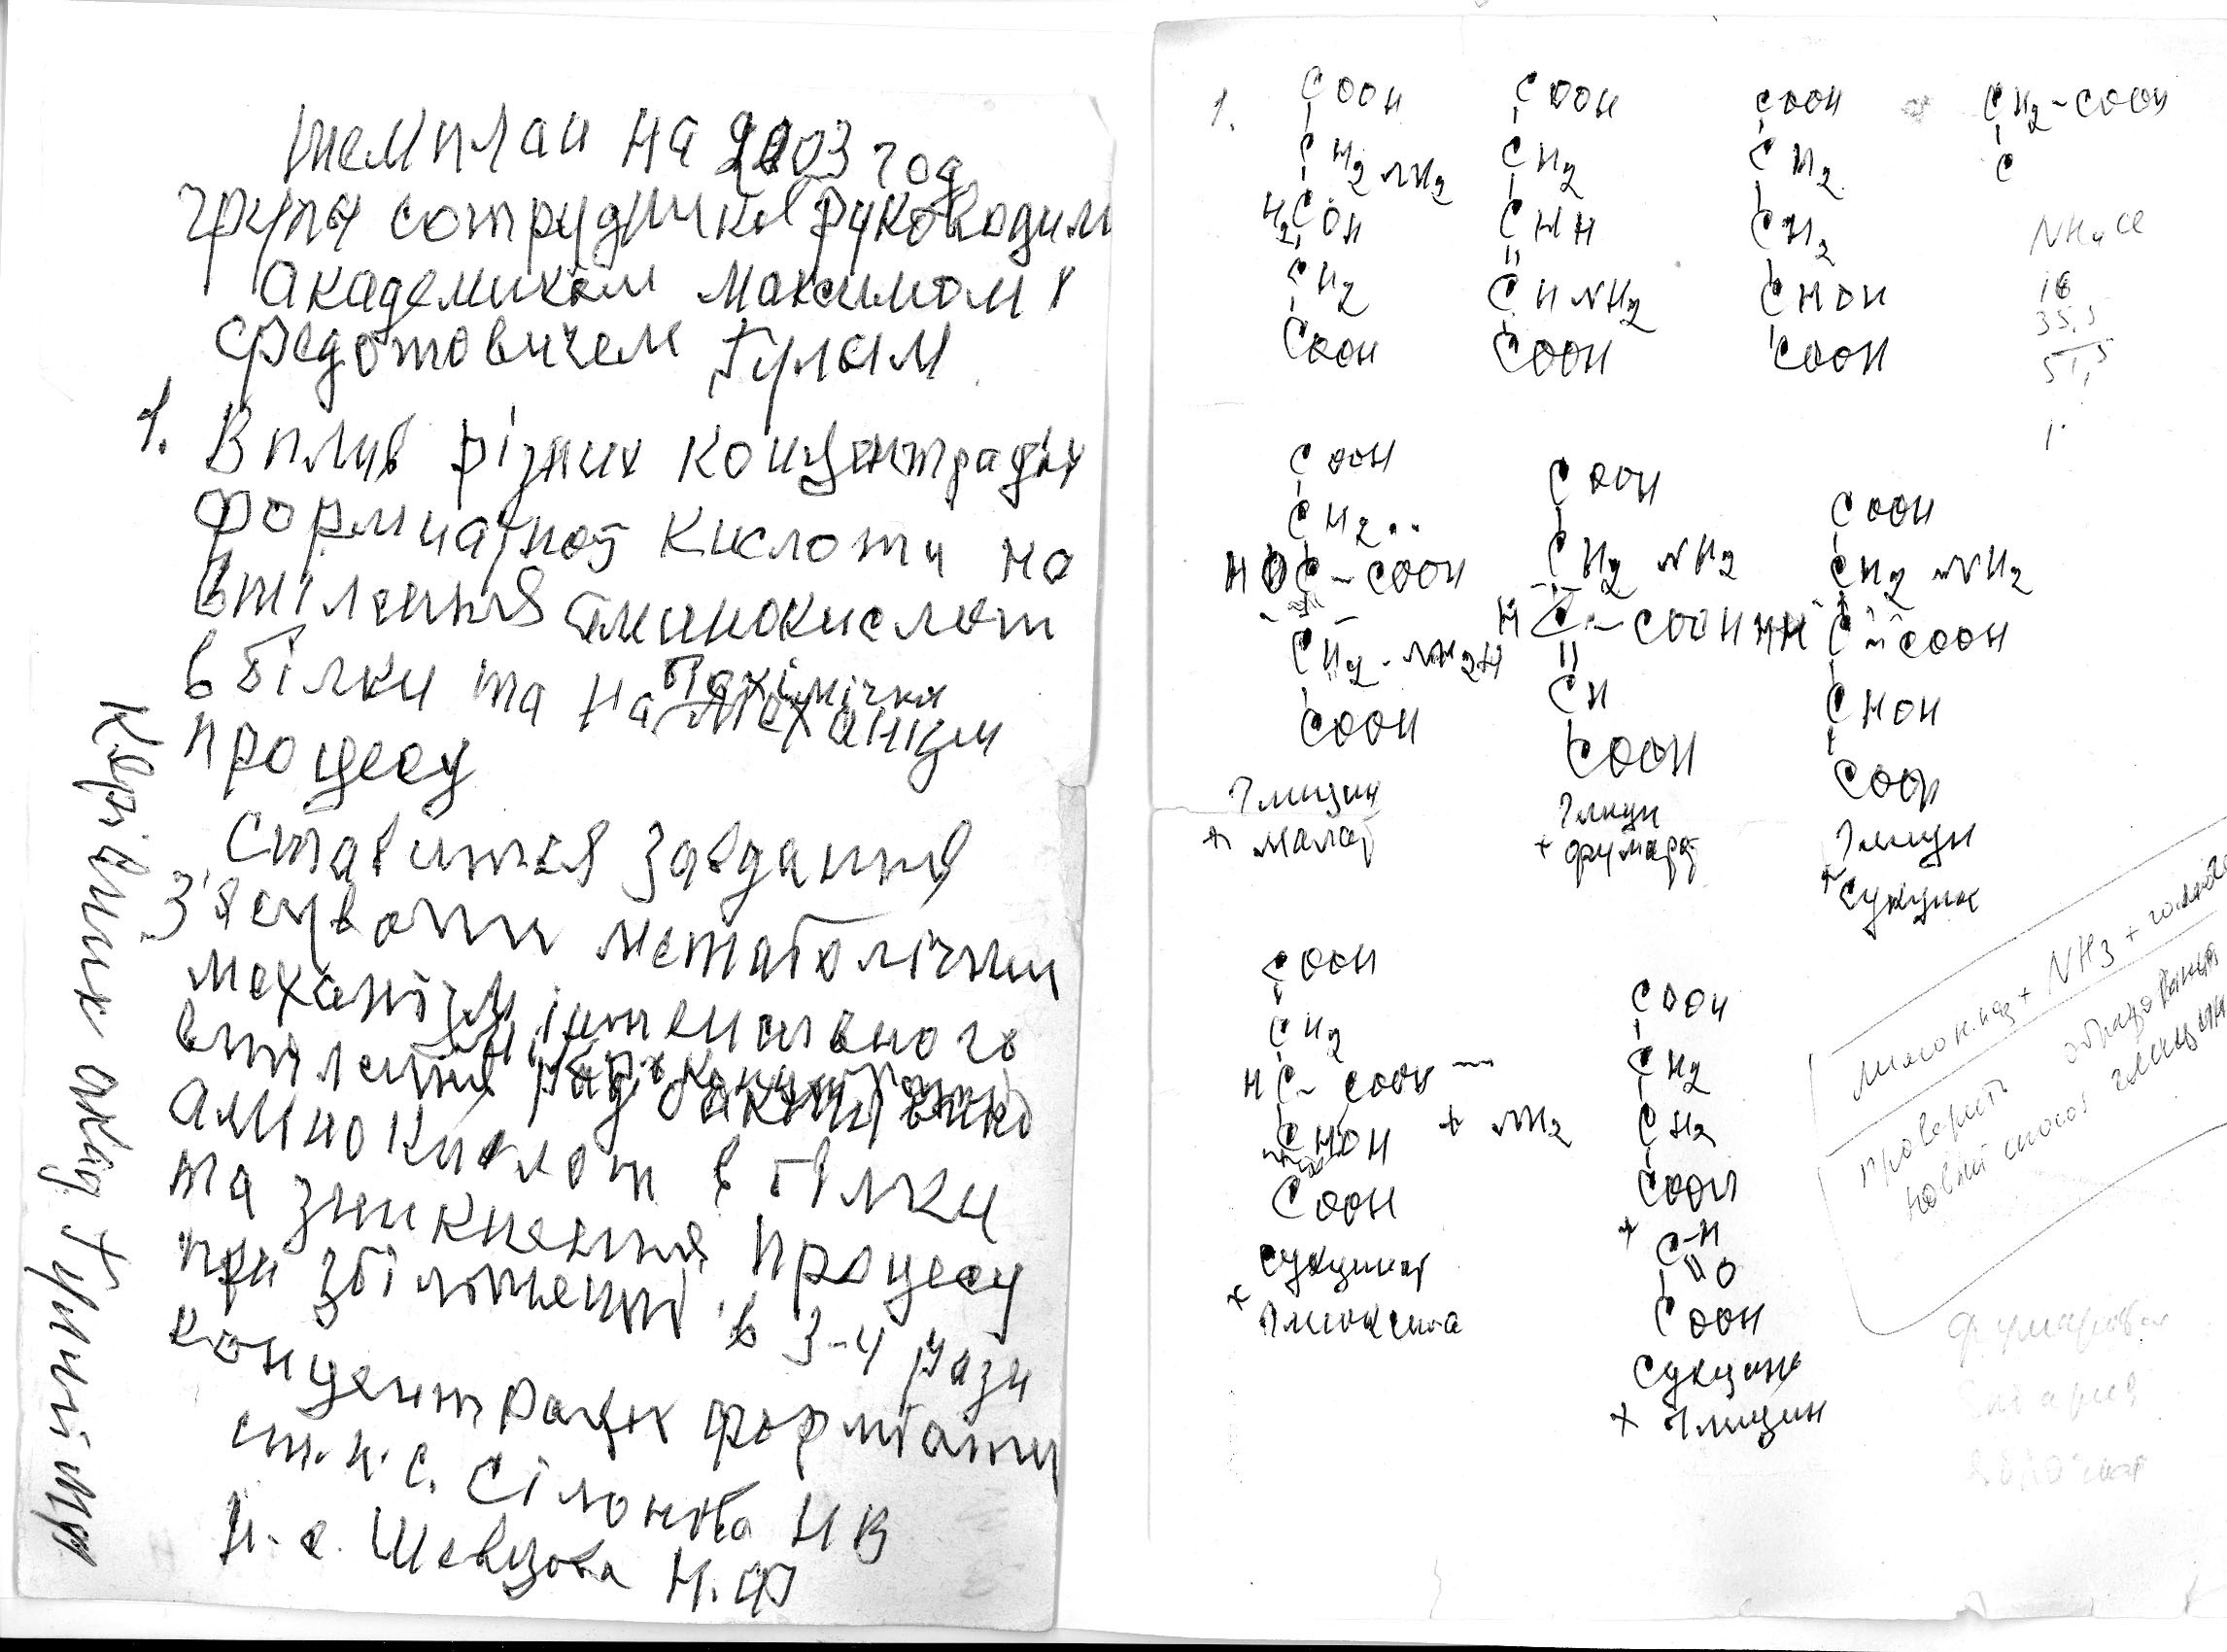 темплан на 2003 год
групы сотрудників руководим
академиком Максимом
Федотовичем Гулым
1. Вплив різних концентрацій
форміатної кислоти на
втілення амінокислот
в білки та на біохімічний
механізм
процесу
Ставиться завдання
з'ясувати метаболічний
механізм інтенсивного
втілення
амінокислот в білки
та зникнення процесу
при збільшенні в 3-4 рази
концентрації форміату
ст.н.с. Сілонова Н В
н.с. Шевцова Н.Ф
Керівник акад Гулий МФ
1.
COOH
CH2 NH2
H2COH
CH2
COOH
COOH
CH2
CHH
CHNH2
COOH
COOH
CH2
CH2
CHOH
COOH
CH2-COOH
C
NH4Cl
18
35,5
51,5
1.
COOH
CH2
HOC-COOH
CH2-NH2H
COOH
Гліцин
+ малат
COOH
CH2 NH2
HC-COOH
CH
COOH
Гліцин
+ фумарат
COOH
CH2 NH2
C-COOH
CHOH
COOH
Гліцин
+ сукцинат
COOH
CH2
HC-COOH
CHOH + NH2
COOH
сукцинат
+ Гліоксила
COOH
CH2
CH2
COOH
+ C-H
O
COOH
Сукцинат
+ Гліцин
+ NH3 +
проверить образования
новый способ глицин